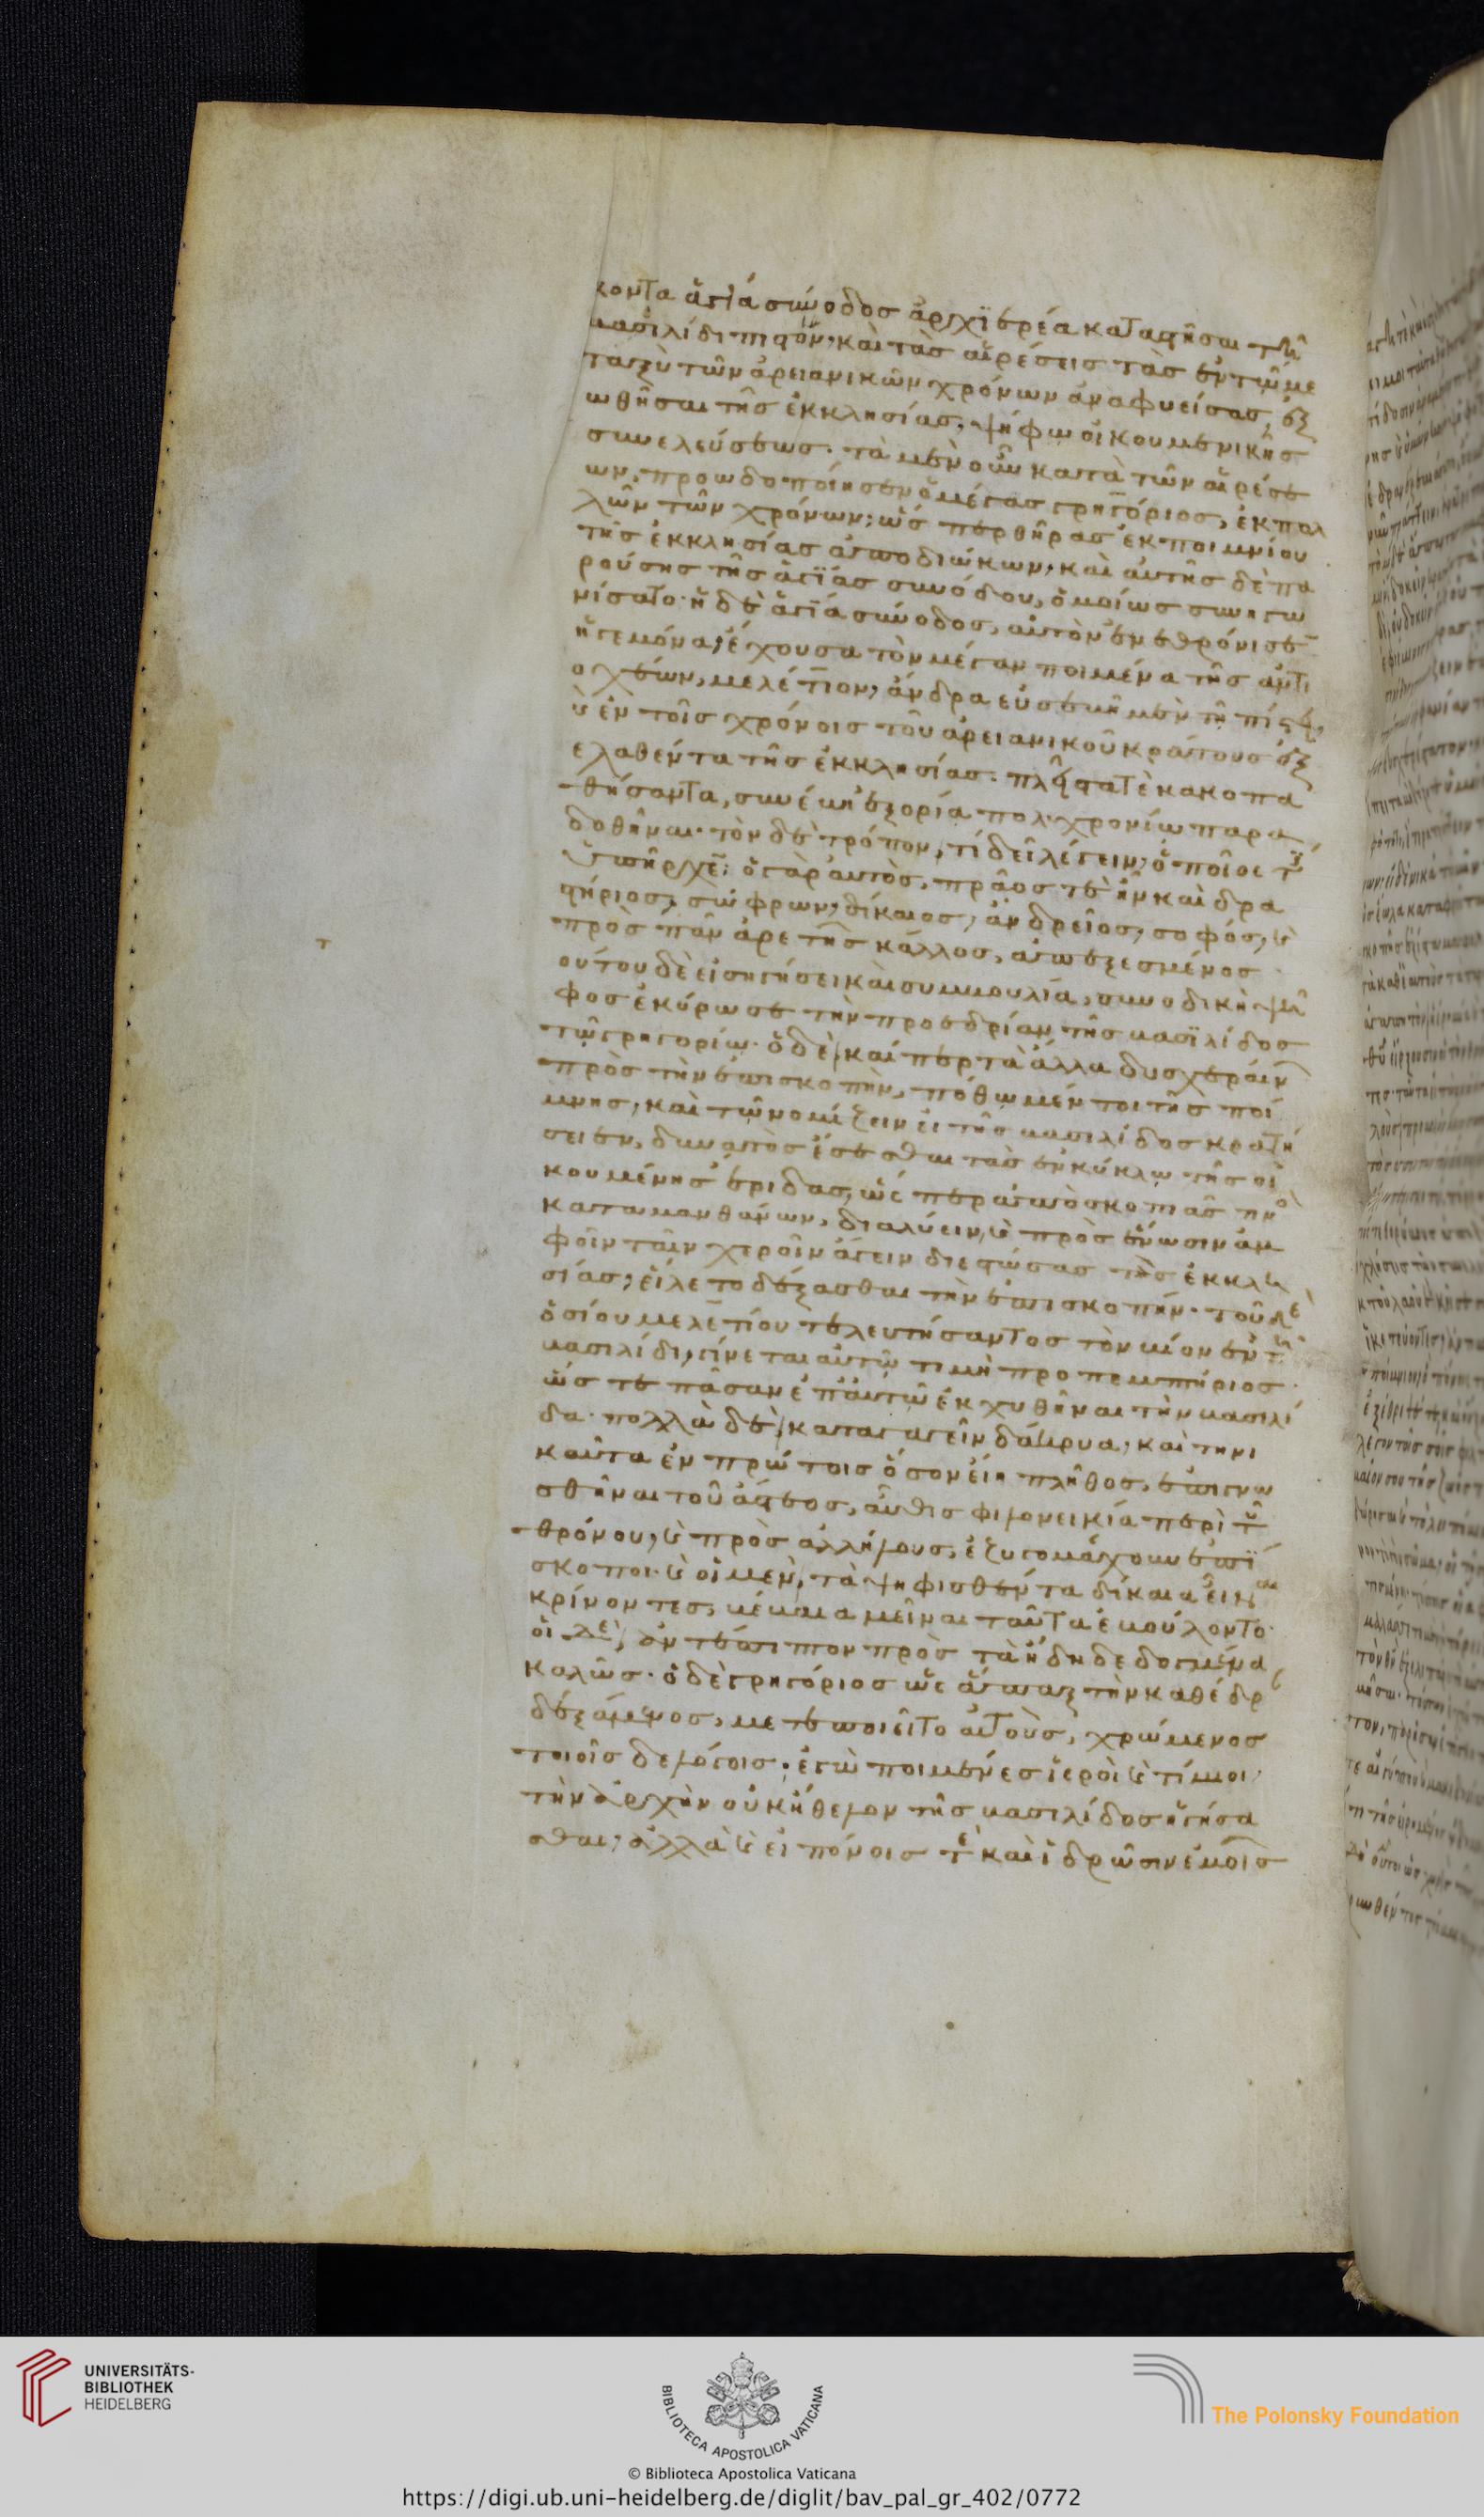 κοντα ἁγία σύνοδος ἀρχϊερέα καταστῆσαι τῆ
βασιλίδι πιστόν· καὶ τὰς αἱρέσεις τὰς ἐν τῶ με
ταξὺ τῶν ἀρειανικῶν χρόνων ἀναφυείσας, ἐξ
ωθῆσαι τῆς ἐκκλησίας, ψήφω οἰκουμενικῆς
συνελεύσεως. τὰ μὲν οὖν κατὰ τῶν αἱρέσε
ων, προωδοποίησεν ὁ μέγας γρηγόριος, ἐκ πολ
λῶν τῶν χρόνων· ὥσπερ θῆρας ἐκ ποιμνίου
τῆς ἐκκλησίας ἀποδιώκων, καὶ αὐτῆς δὲ πα
ρούσης τῆς ἁγίας συνόδου, ὁμοίως συνηγω
νίσατο· ἡ δὲ ἁγία σύνοδος, αὐτὸν ἐνεθρόνισε
ἡγεμόνα, ἔχουσα τὸν μέγαν ποιμένα τῆς ἀντι
οχέων, μελέτιον, ἄνδρα εὐσεβῆ μὲν τῆ πίστει,
καὶ ἐν τοῖς χρόνοις τοῦ ἀρειανικοῦ κράτους ἐξ
ελαθέντα τῆς ἐκκλησίας. πλεῖστά τὲ κακοπα
θήσαντα, συνέβη ἐξορία πολυχρονίω παρα
δοθῆναι. τὸν δὲ τρόπον, τί δεῖ λέγειν, ὁποῖός τις
ὑπῆρχεν; ὁ γὰρ αὐτὸς, πρᾶος τὲ ἦν καὶ δρα
στήριος, σώφρων, δίκαιος, ἀνδρεῖος, σοφός, καὶ
πρὸς πᾶν ἀρετῆς κάλλος, ἀπεξεσμένος
οὑ τοῦδε εἰσηγήσει καὶ συμβουλία, συνοδικὴ ψῆ
φος ἐκύρωσε τὴν προεδρίαν τῆς βασϊλίδος
τῶ γρηγορίω. ὁ δὲ, καίπερ τὰ ἄλλα δυσχεραίνων
πρὸς τὴν ἐπισκοπὴν, πόθω μέν τοι τῆς ποί
μνης, καὶ τῶ νομίζειν εἰ τῆς βασιλίδος κρατή
σειεν, δυνατὸς ἔσεσθαι τὰς ἐν κύκλω τῆς οἰ
κουμένης ἔριδας, ὥσπερ ἀπὸ σκοπιᾶς τινὸς
καταμανθάνων, διαλύειν, καὶ πρὸς ἕνωσιν ἀμ
φοῖν ταῖν χεροῖν ἄγειν διεστώσας τὰς ἐκκλη
σίας, εἵλετο δέξασθαι τὴν ἐπισκοπήν. τοῦ δὲ
ὁσίου μελετίου τελευτήσαντος τὸν βίον ἐν τῆ
βασιλίδι, γίνεται αὐτῶ τιμὴ προπεμπτήριος
ὥς τε πᾶσαν ἐπ' αὐτῶ ἐκχυθῆναι τὴν βασιλί
δα. πολλὰ δὲ, καταγαγεῖν δάκρυα, καὶ τηνι
καῦτα ἐν πρώτοις ὅσον εἴη πλῆθος, ἐπιγνω
σθῆναι τοῦ ἄστεος, αὖθις φιλονεικία περὶ τοῦ
θρόνου, καὶ πρὸς ἀλλήλους, ἐζυγομάχουν ἐπί
σκοποι. καὶ οἱ μὲν, τὰ ψηφισθέντα δίκαια εἶναι
κρίνοντες, βέβαια μεῖναι ταῦτα ἐβούλοντο.
οἱ δὲ, ἀντέπιπτον πρὸς τὰ ἤδη δεδογμένα
καλῶς. ὁ δὲ γρηγόριος ὡς ἅπαξ τὴν καθέδραν
δεξάμενος, μετεποιεῖτο αὐτοὺς, χρώμενος
τοιοῖσδε λόγοις. ἐγὼ ποιμένες ἱεροὶ καὶ τίμιοι,
τὴν ἀρχὴν οὐκ ἤθελον τῆς βασιλίδος ἡγήσα
σθαι, ἀλλὰ καὶ εἰ πόνοις τὲ καὶ ἱδρῶσιν ἐμοῖς
UNIVERSITÄTS-
BIBLIOTHEK
HEIDELBERG
BIBLIOTECA APOSTOLICA VATICANA
© Biblioteca Apostolica Vaticana
The Polonsky Foundation
https://digi.ub.uni-heidelberg.de/diglit/bav_pal_gr_402/0772